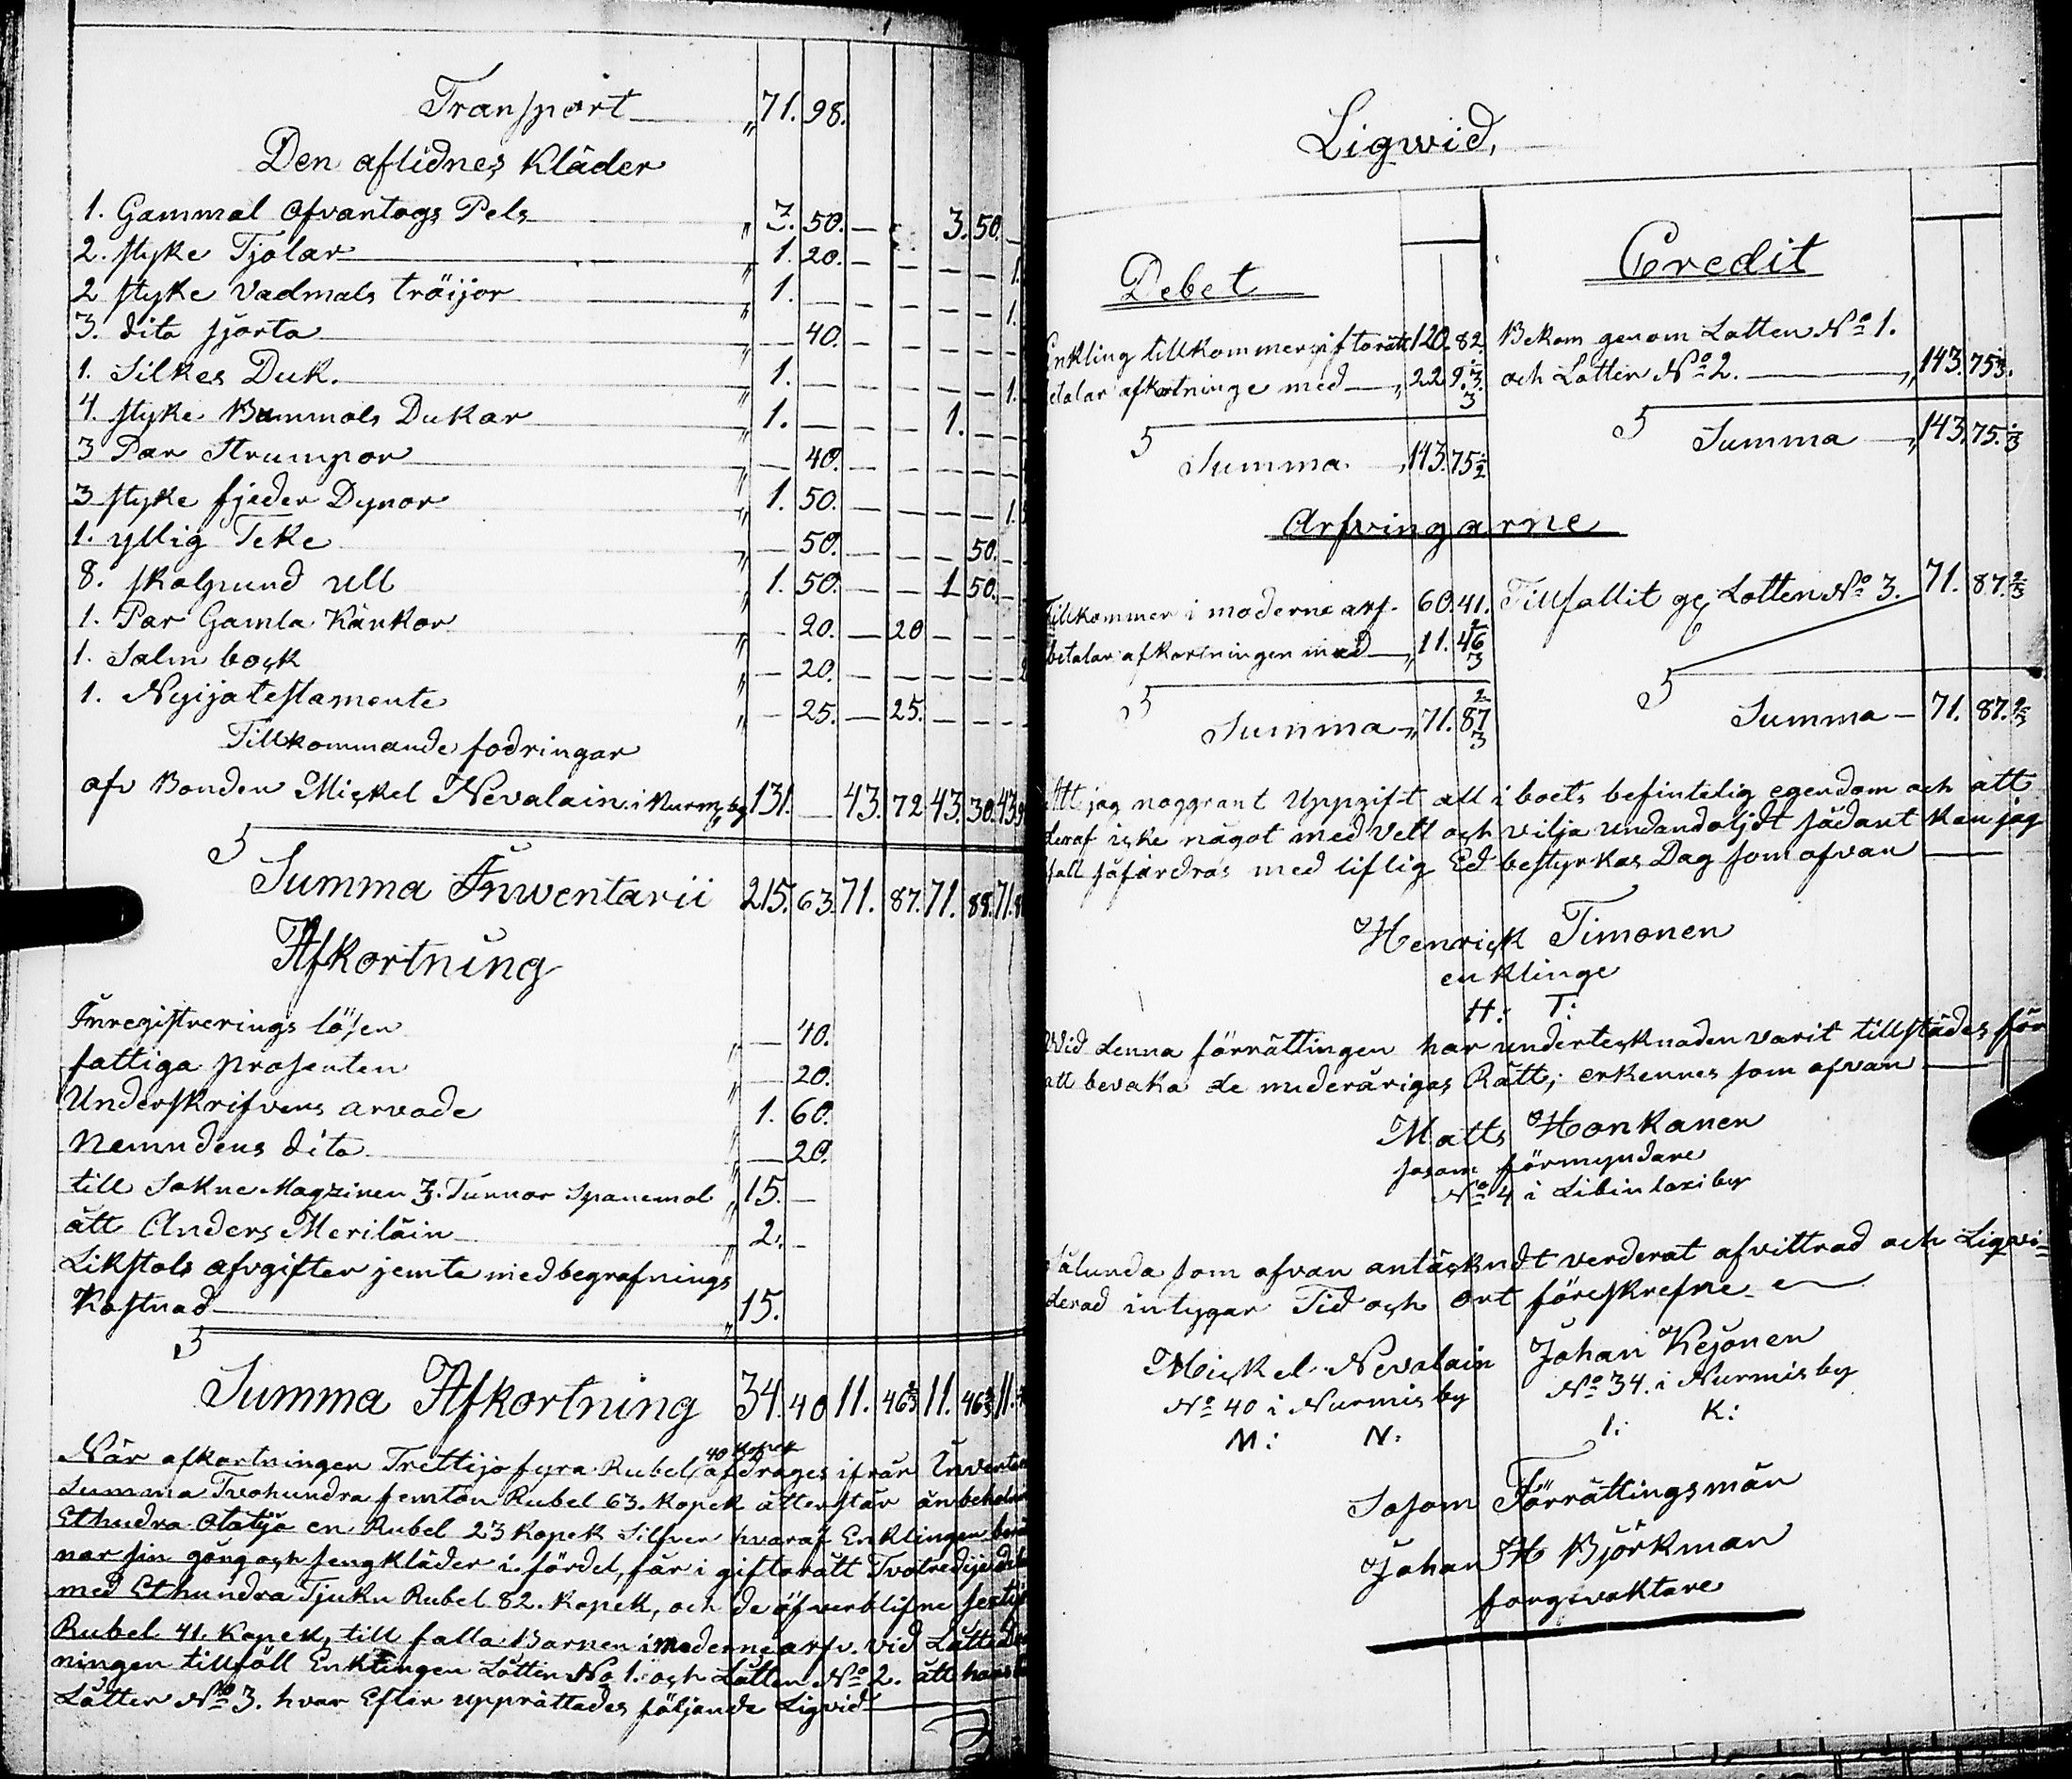 Transport „ 71. 98.
Den aflidnes Kläder
1. Gammal ofvantogs Pels „ 3. 50. — 3. 50. —
2. styke Tjolar „ 1. 20. — — — — 1.
2 styke Vadmals tröijor „ 1. — — — — — 1.
3. dito sjorta „ — 40. — — — —
1. Silkes Duk. „ 1. — — — — — 1.
4. styke Bummols Dukar „ 1. — — — 1. — —
3 Par Strumpor „ — 40. — — — —
3 styke fjeder Dynor „ 1. 50. — — — — 1.
1. yllig Teke „ — 50. — — — 50. —
8. skalpund ull „ 1. 50. — — 1 50. —
1. Par Gamla Känkor „ — 20. — 20 — — —
1. Salm bock „ — 20. — — — — 2
1. Nyija testamente „ — 25. — 25. — — —
Tillkommande fodringar
afv Bonden Mickel Nevalain i Nurms by 131. — 43. 72 43. 30. 43
Summa Inwentarii 215. 63. 71. 87. 71. 88. 71.
Afkortning
Inregistrerings lösen „ — 40.
fattiga prosenten „ — 20.
Underskrifvens arvode „ 1. 60.
Nemndens dito „ — 20.
till Sokne Magzinen 3. Tunnor Spanemol „ 15. —
ått Anders Meriläin „ 2. —
Likstols afvgifter jemte med begrafnings
Kostnad „ 15.
Summa Afkortning 34. 40 11. 46 2/3 11. 46 2/3 11.
40 Kopek
När afkortningen Trettijo fyra Rubel, afdrages ifrån Inventar
Summa Tvohundra femton Rubel 63. kopek åtterstår än behol
Ethudra otatijo en Rubel 23 Kopek Silfver hvaraf Enklingen
nar sin gång och sengkläder i. fördel, får i giftorätt Tvotredije del
med Ethundra Tjuku Rubel 82. Kopek, och de öfverblifne sextij
Rubel 41. Kopek, till falla Barnen i moderne arfv. vid Lätte
ningen tillföll Enklingen Lotten No 1. och Lotten No 2. ått hans
Lotten No 3. hvar Efter upprättades följande Ligvid
Ligwid,
Debet
Credit
Enkling tillkommer giftorätt 120. 82.
betalar afkortninge med „ 22 9. 1/3
Summa „ 143. 75 1/2
Bekom genom Lotten No 1.
och Lotten No 2. „ 143. 75 1/3.
Summa „ 143. 75. 1/3
Arfvingarne
Tillkommer i moderne arf. 60. 41.
betalar afkortningen med „ 11. 46 2/3
Summa „ 71. 87 2/3
Tillfallit gg Lotten No 3. 71. 87. 2/3
Summa — 71. 87. 2/3
Att jag noggrant Uppgift all i boets befintelig egendom och att
deraf icke något med Vett och vilja undandoljdt sådant kan jag
fall så fårdras med liflig Ed bestyrkas Dag som ofvan
Henrick Timonen
enklinge
H: T:
Wid denna förrättingen har undertecknaden varit tillstädes för
att bevaka de muderårigas Rätt; erkennes som ofvan
Matts Honkanen
sosom förmyndare
No 4 i Libinlaxi by
Sålunda som ofvan antäckndt verderat afvittrad och Ligvi=
derad intygar Tid och ort föreskrefne
Mickel Nevalain
No 40 i Nurmis by
M: N:
Johan Kejonen
No 34. i Nurmis by
I: K:
Sosom Förrättingsmän
Johan H Björkman
forgevaktare